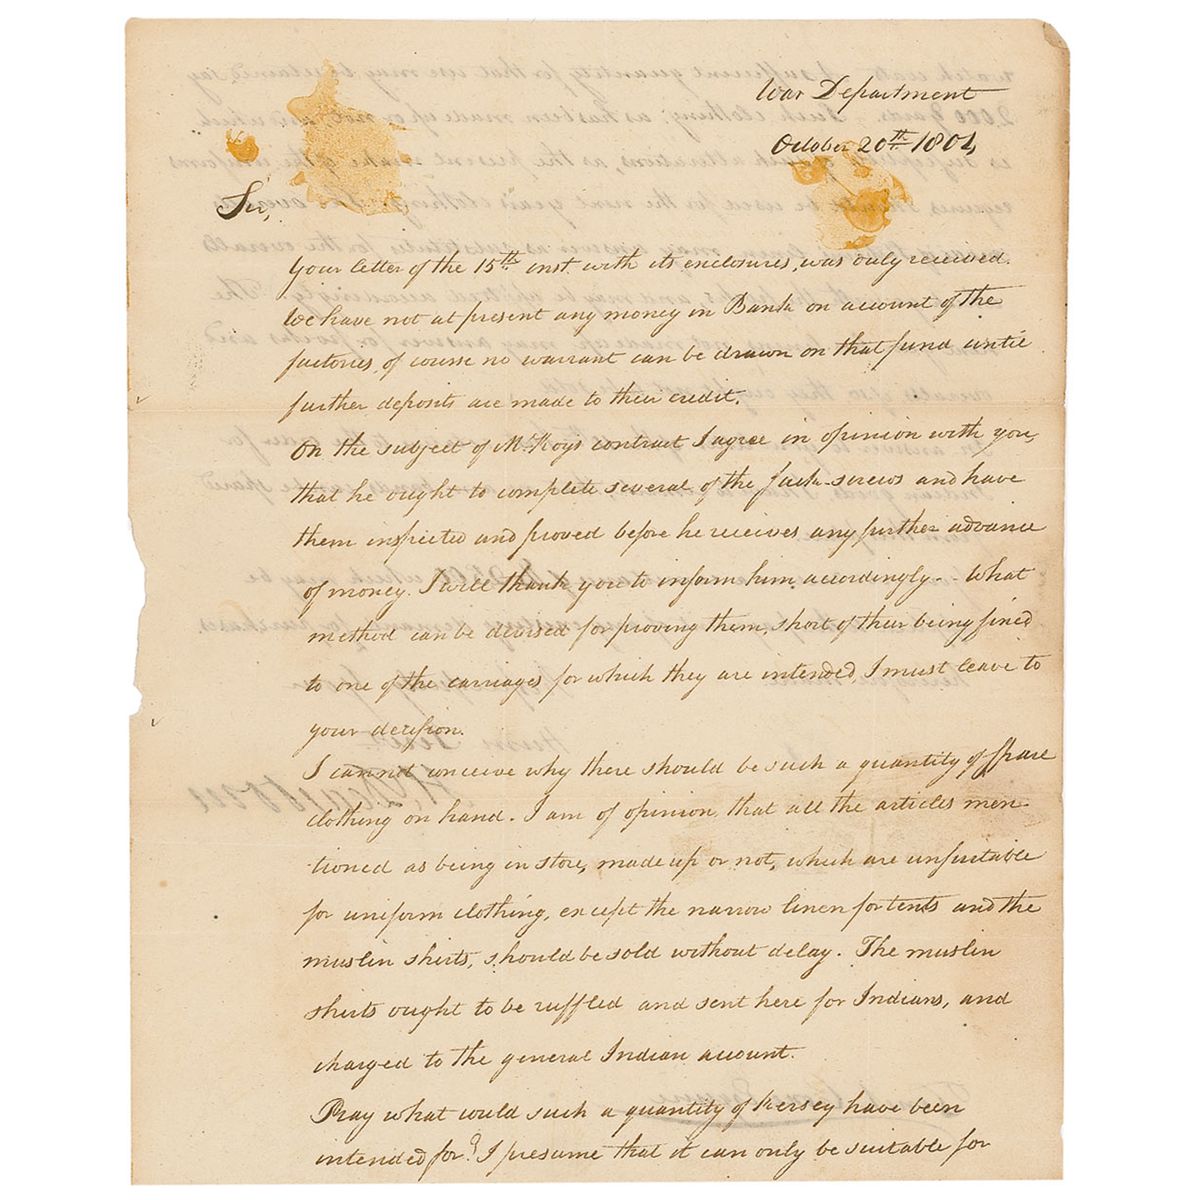 War Department
October 20th. 1801,
Sir,
Your letter of the 15th. inst. with its enclosures, was only received.
We have not at present any money in Bank on account of the
factories, of course no warrant can be drawn on that fund until
further deposits are made to their credit.
On the subject of Mc.Koys contract I agree in opinion with you,
that he ought to complete several of the jack-screws and have
them inspected and proved before he receives any further advance
of money. I will thank you to inform him accordingly. - What
method can be devised for proving them, short of their being fixed
to one of the carriages for which they are intended, I must leave to
your decision.
I cannot conceive why there should be such a quantity of spare
clothing on hand. I am of opinion, that all the articles men-
tioned as being in store, made up or not, which are unsuitable
for uniform clothing, except the narrow linen for tents and the
muslin shirts, should be sold without delay. The muslin
shirts ought to be ruffled and sent here for Indians, and
charged to the general Indian account.
Pray what would such a quantity of kersey have been
intended for? I presume that it can only be suitable for